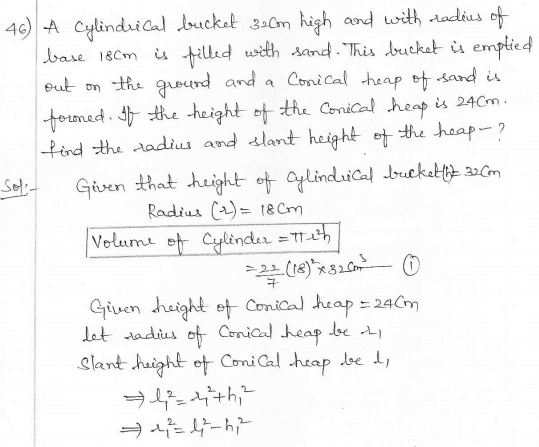 46) A Cylindrical bucket 32cm high and with radius of
base 18cm is filled with sand. This bucket is emptied
out on the ground and a Conical heap of sand is
formed. If the height of the Conical heap is 24cm.
find the radius and slant height of the heap - ?
Sol:- Given that height of cylindrical bucket(h)= 32cm
Radius (r) = 18cm
Volume of Cylinder = πr²h
= 22/7 (18)² × 32 cm³ — ①
Given height of Conical heap = 24cm
let radius of Conical heap be r₁
Slant height of Conical heap be l₁
⇒ l₁² = r₁² + h₁²
⇒ r₁² = l₁² - h₁²